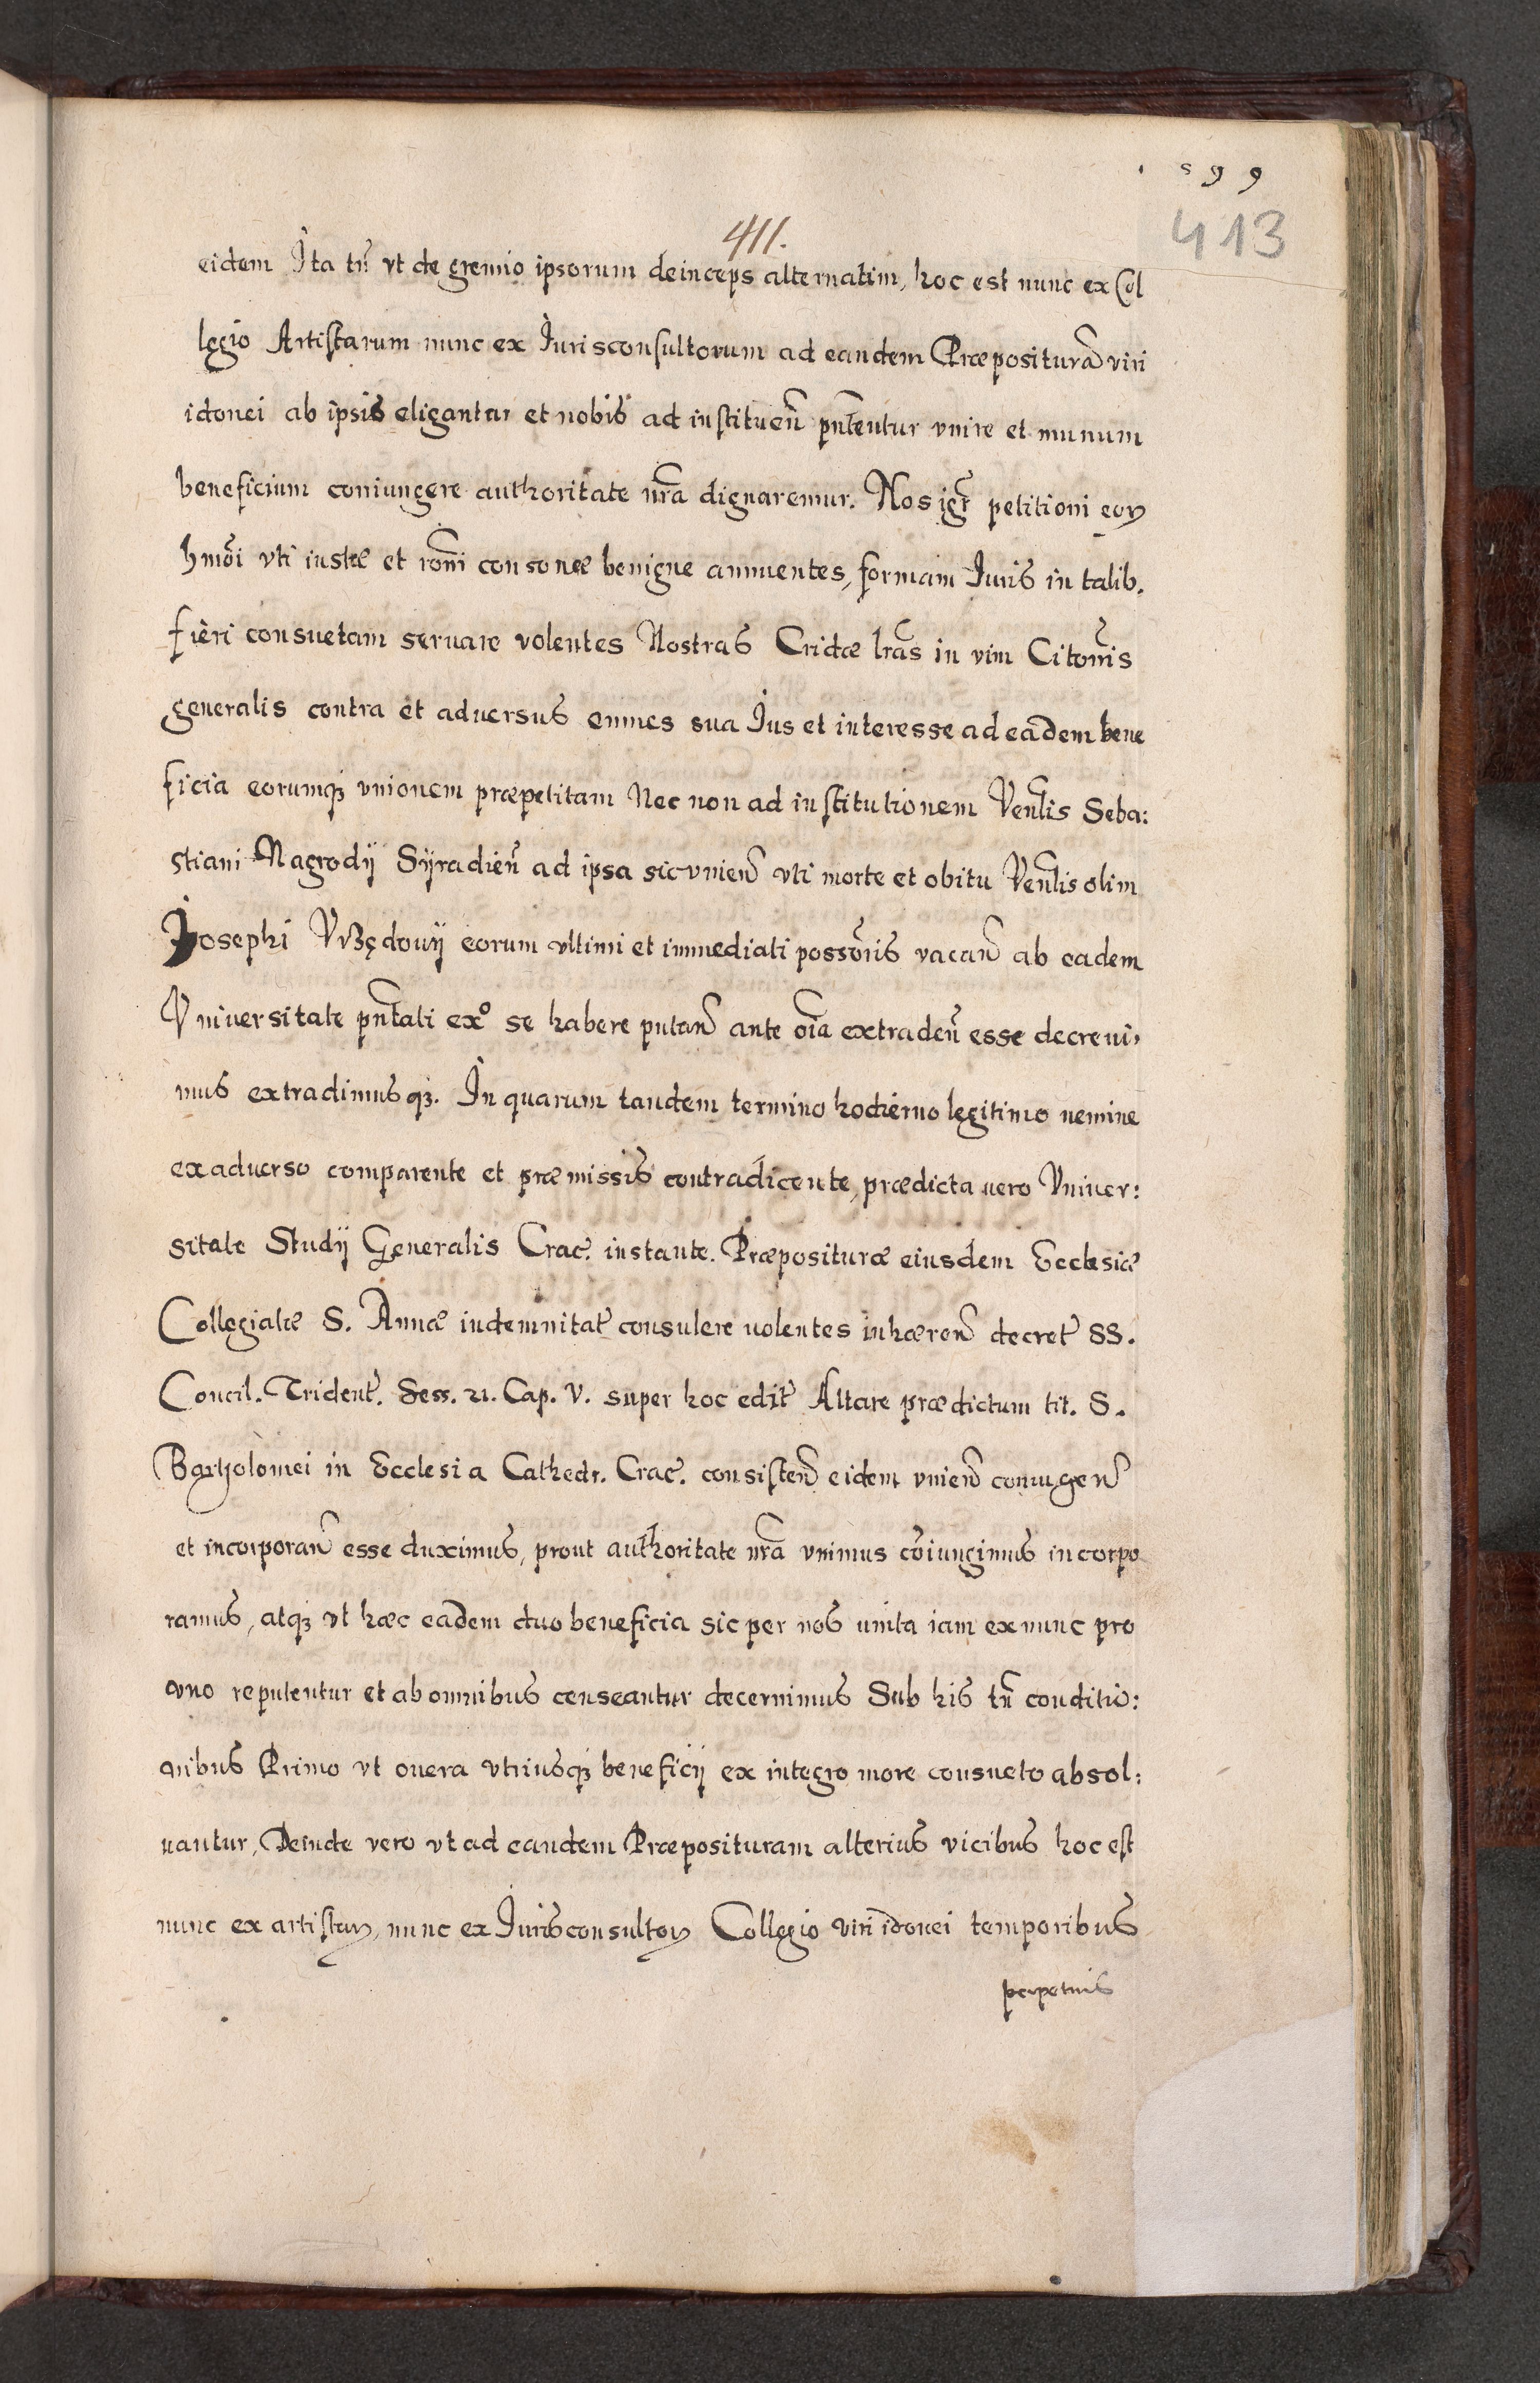 599
413
411.
eidem Ita tñ vt de gremio ipsorum deinceps alternatim, hoc est nunc ex Col
legio Artistarum nunc ex Iurisconsultorum ad eandem Præposituram̃ viri
idonei ab ipsis eligantur et nobis ad instituen̄ pñtentur vnire et in unum
beneficium coniungere authoritate nr̃a dignaremur. Nos igr̃ petitioni eoꝝ
hmõi vti iustæ et rõni consonæ benigne annuentes, formam Iuris in talib.
fieri consuetam seruare volentes Nostras Cridæ lr̃as in vim Citõnis
generalis contra et aduersus omnes sua Ius et interesse ad eadem bene
ficia eorumqꝫ vnionem præpetitam Nec non ad institutionem Ven̄lis Seba:
stiani Nagrodÿ Sÿradien̄ ad ipsa sic vnien̄ vti morte et obitu Ven̄lis olim
Iosephi Vrzędowÿ eorum vltimi et immediati possõris vacan̄ ab eadem
Vniversitate pñtati ex° se habere putan̄ ante oĩa extraden̄ esse decreui,
mus extradimusqꝫ. In quarum tandem termino hodierno legitimo nemine
ex aduerso comparente et præmissis contradicente, prædicta uero Vniuer:
sitate Studÿ Generalis Crac̄. instante. Præposituræ eiusdem Ecclesiæ
Collegiatæ S. Annæ indemnitat̄ consulere uolentes inhæren̄ decret̄ SS.
Concil. Trident̄. Sess. 21. Cap. V. super hoc edit̄ Altare prædictum tit. S.
Bartholomei in Ecclesia Cathedr. Crac̄. consisten̄ eidem vnien̄ coniugen̄
et incorporan̄ esse duximus, prout authoritate nr̃a vnimus cõiungimus incorpo
ramus, atqꝫ vt hæc eadem duo beneficia sic per nos unita iam ex nunc pro
vno reputentur et ab omnibus censeantur decernimus Sub his tñ conditio:
nibus Primo vt onera vtriusqꝫ beneficÿ ex integro more consueto absol:
uantur, Deinde vero vt ad eandem Præposituram alterius vicibus hoc est
nunc ex artistaꝝ, nunc ex Iurisconsultoꝝ Collegio viri idonei temporibus
perpetuis